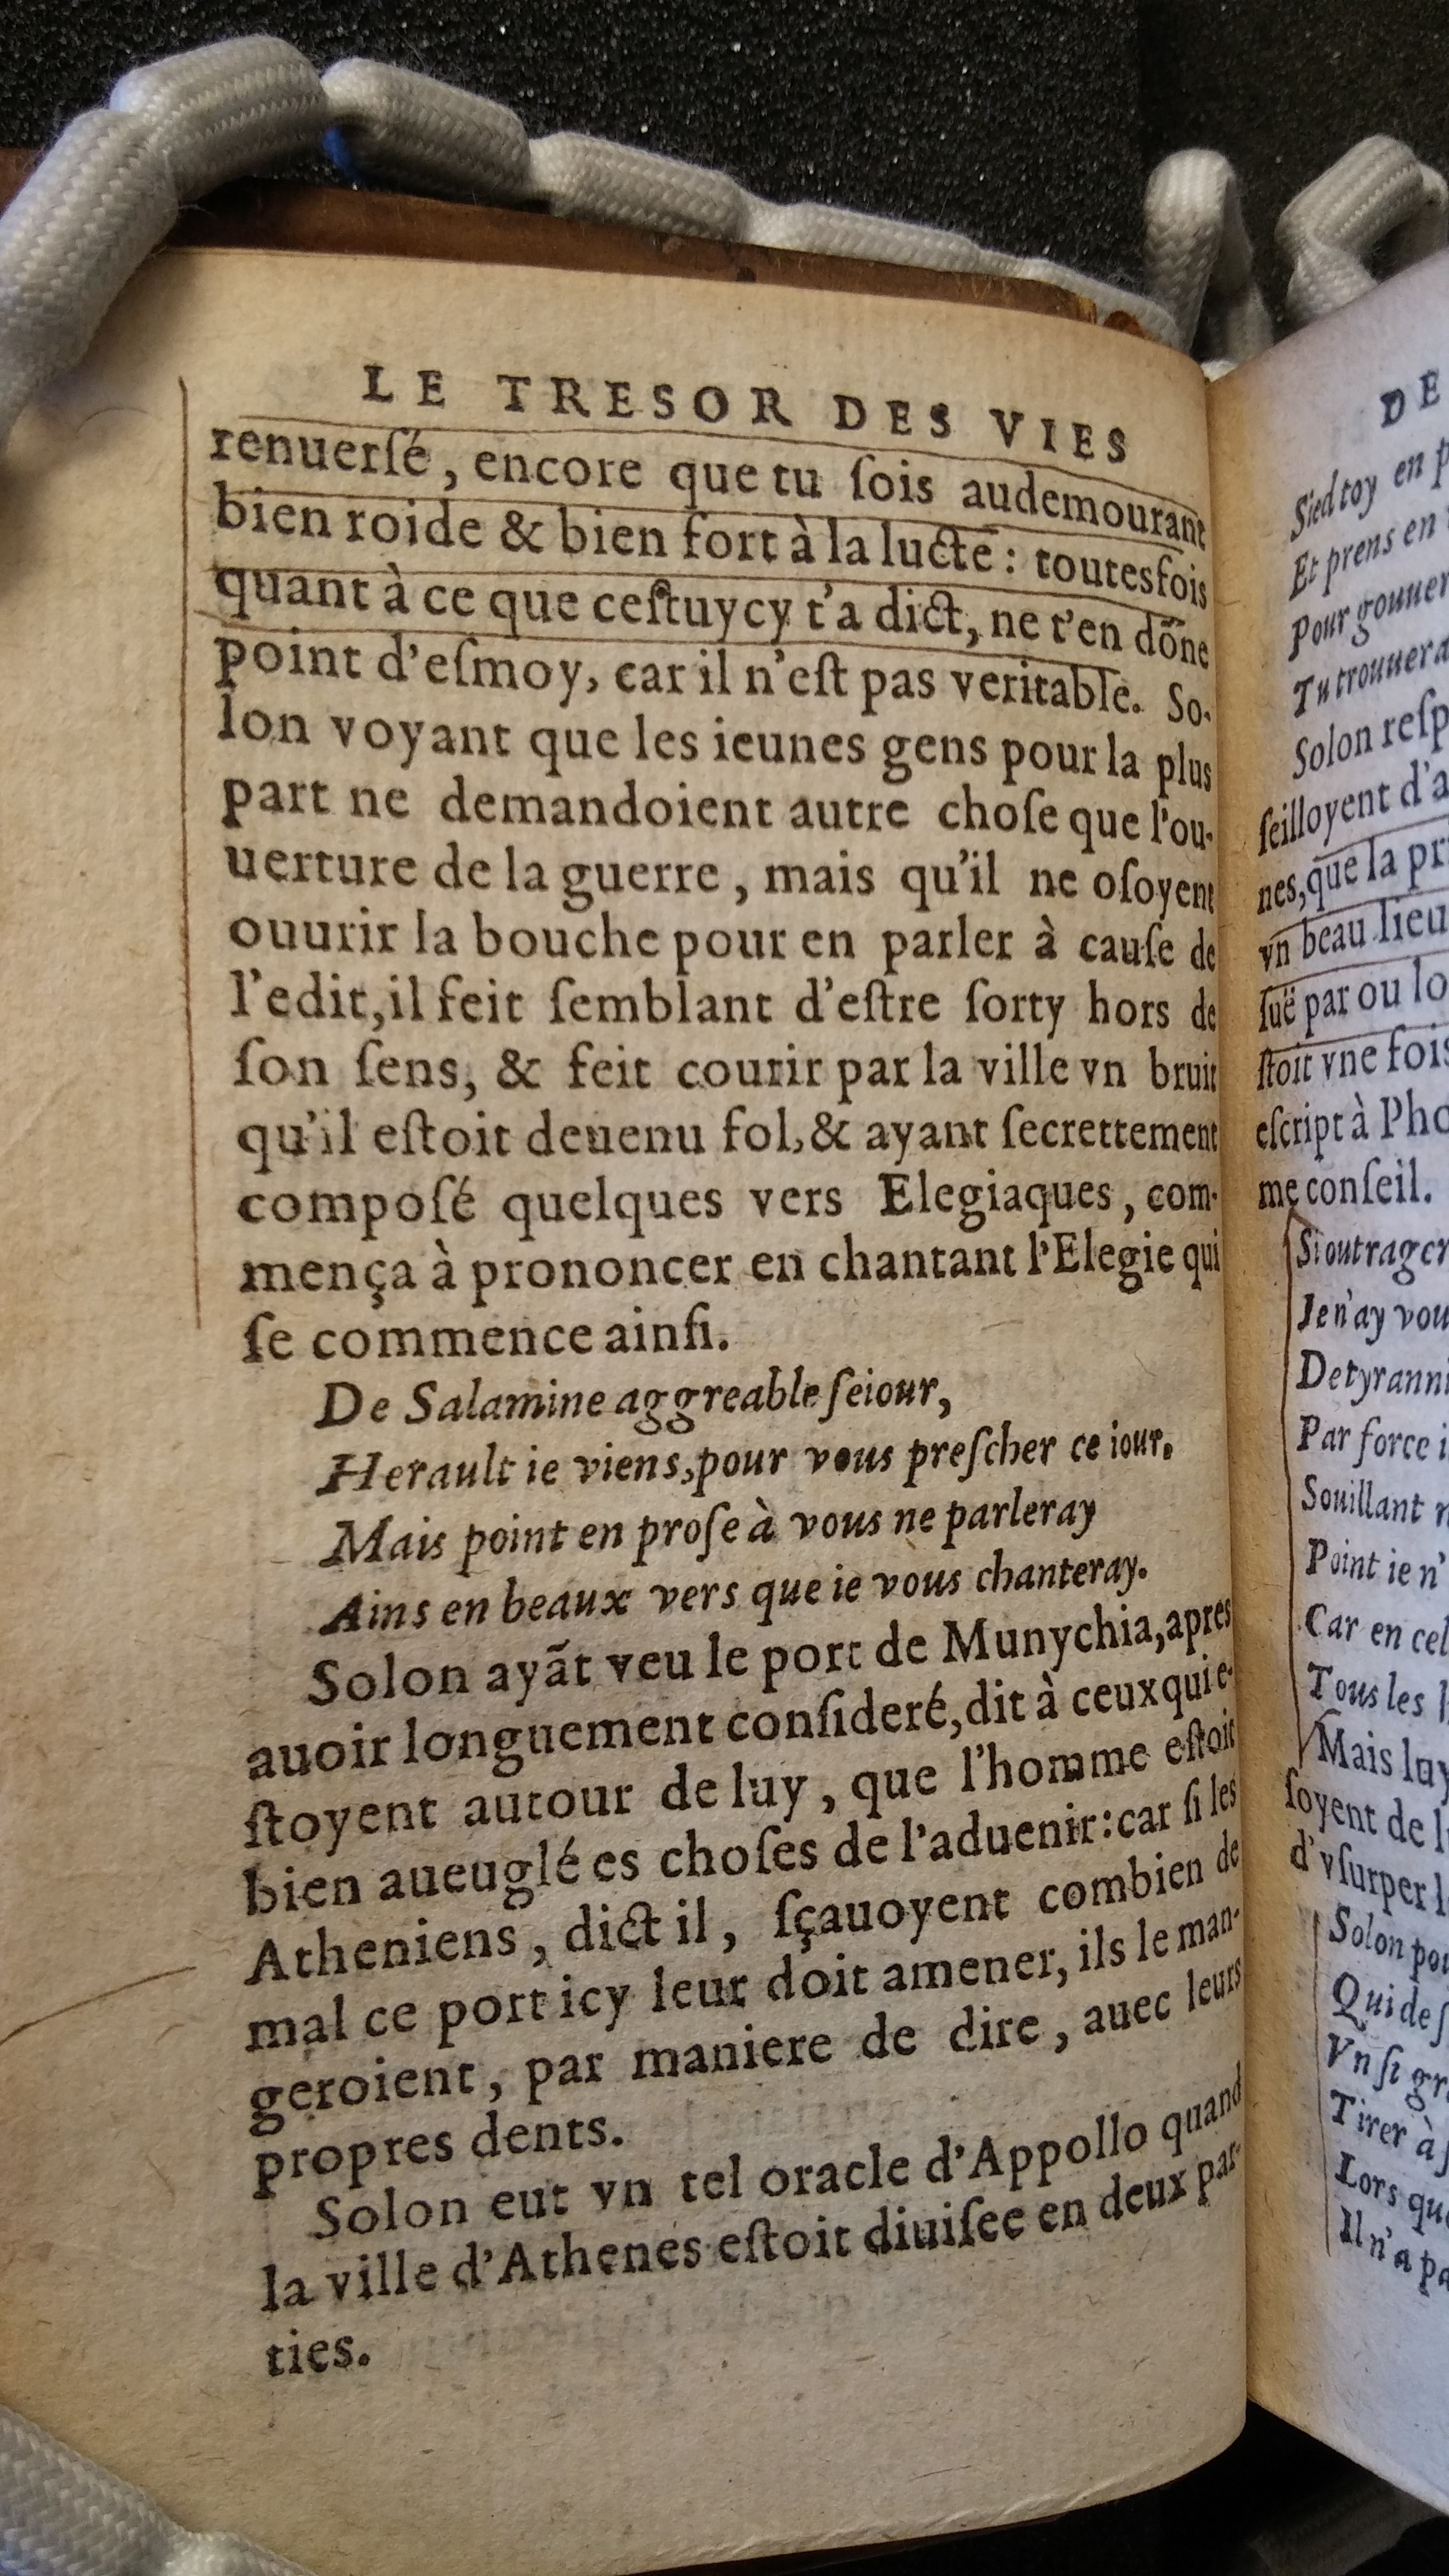 LE TRESOR DES VIES
renuerſé, encore que tu ſois audemourant
bien roide & bien fort à la lucte : toutesfois
quant à ce que ceſtuycy t'a dict, ne t'en dõne
point d'eſmoy, car il n'eſt pas veritable. So-
lon voyant que les ieunes gens pour la plus
part ne demandoient autre choſe que l'ou-
uerture de la guerre, mais qu'il ne oſoyent
ouurir la bouche pour en parler à cauſe de
l'edit, il feit ſemblant d'eſtre ſorty hors de
ſon ſens, & feit courir par la ville vn bruit
qu'il eſtoit deuenu fol, & ayant ſecrettement
compoſé quelques vers Elegiaques, com-
mença à prononcer en chantant l'Elegie qui
ſe commence ainſi.
De Salamine aggreable ſeiour,
Herault ie viens, pour vous preſcher ce iour.
Mais point en proſe à vous ne parleray
Ains en beaux vers que ie vous chanteray.
Solon ayãt veu le port de Munychia, apres
auoir longuement conſideré, dit à ceux qui e-
ſtoyent autour de luy, que l'homme eſtoit
bien aueuglé es choſes de l'aduenir: car ſi les
Atheniens, dict il, ſçauoyent combien de
mal ce port icy leur doit amener, ils le man-
geroient, par maniere de dire, auec leurs
propres dents.
Solon eut vn tel oracle d'Appollo quand
la ville d'Athenes eſtoit diuiſee en deux par-
ties.
DE
Sied toy en
Et prens en
Pour
Tu
Solon
ſeilloyent
nes, que la
vn beau lieu
ſuë par ou
ſtoit vne fois
eſcript à
me conſeil.
Si
Je n'ay
De
Par force
Souillant
Point ie n'
Car en
Tous les
Mais luy
ſoyent de
d'vſurper
Solon
Qui
Vn ſi
Tirer à
Lors
Il n'a